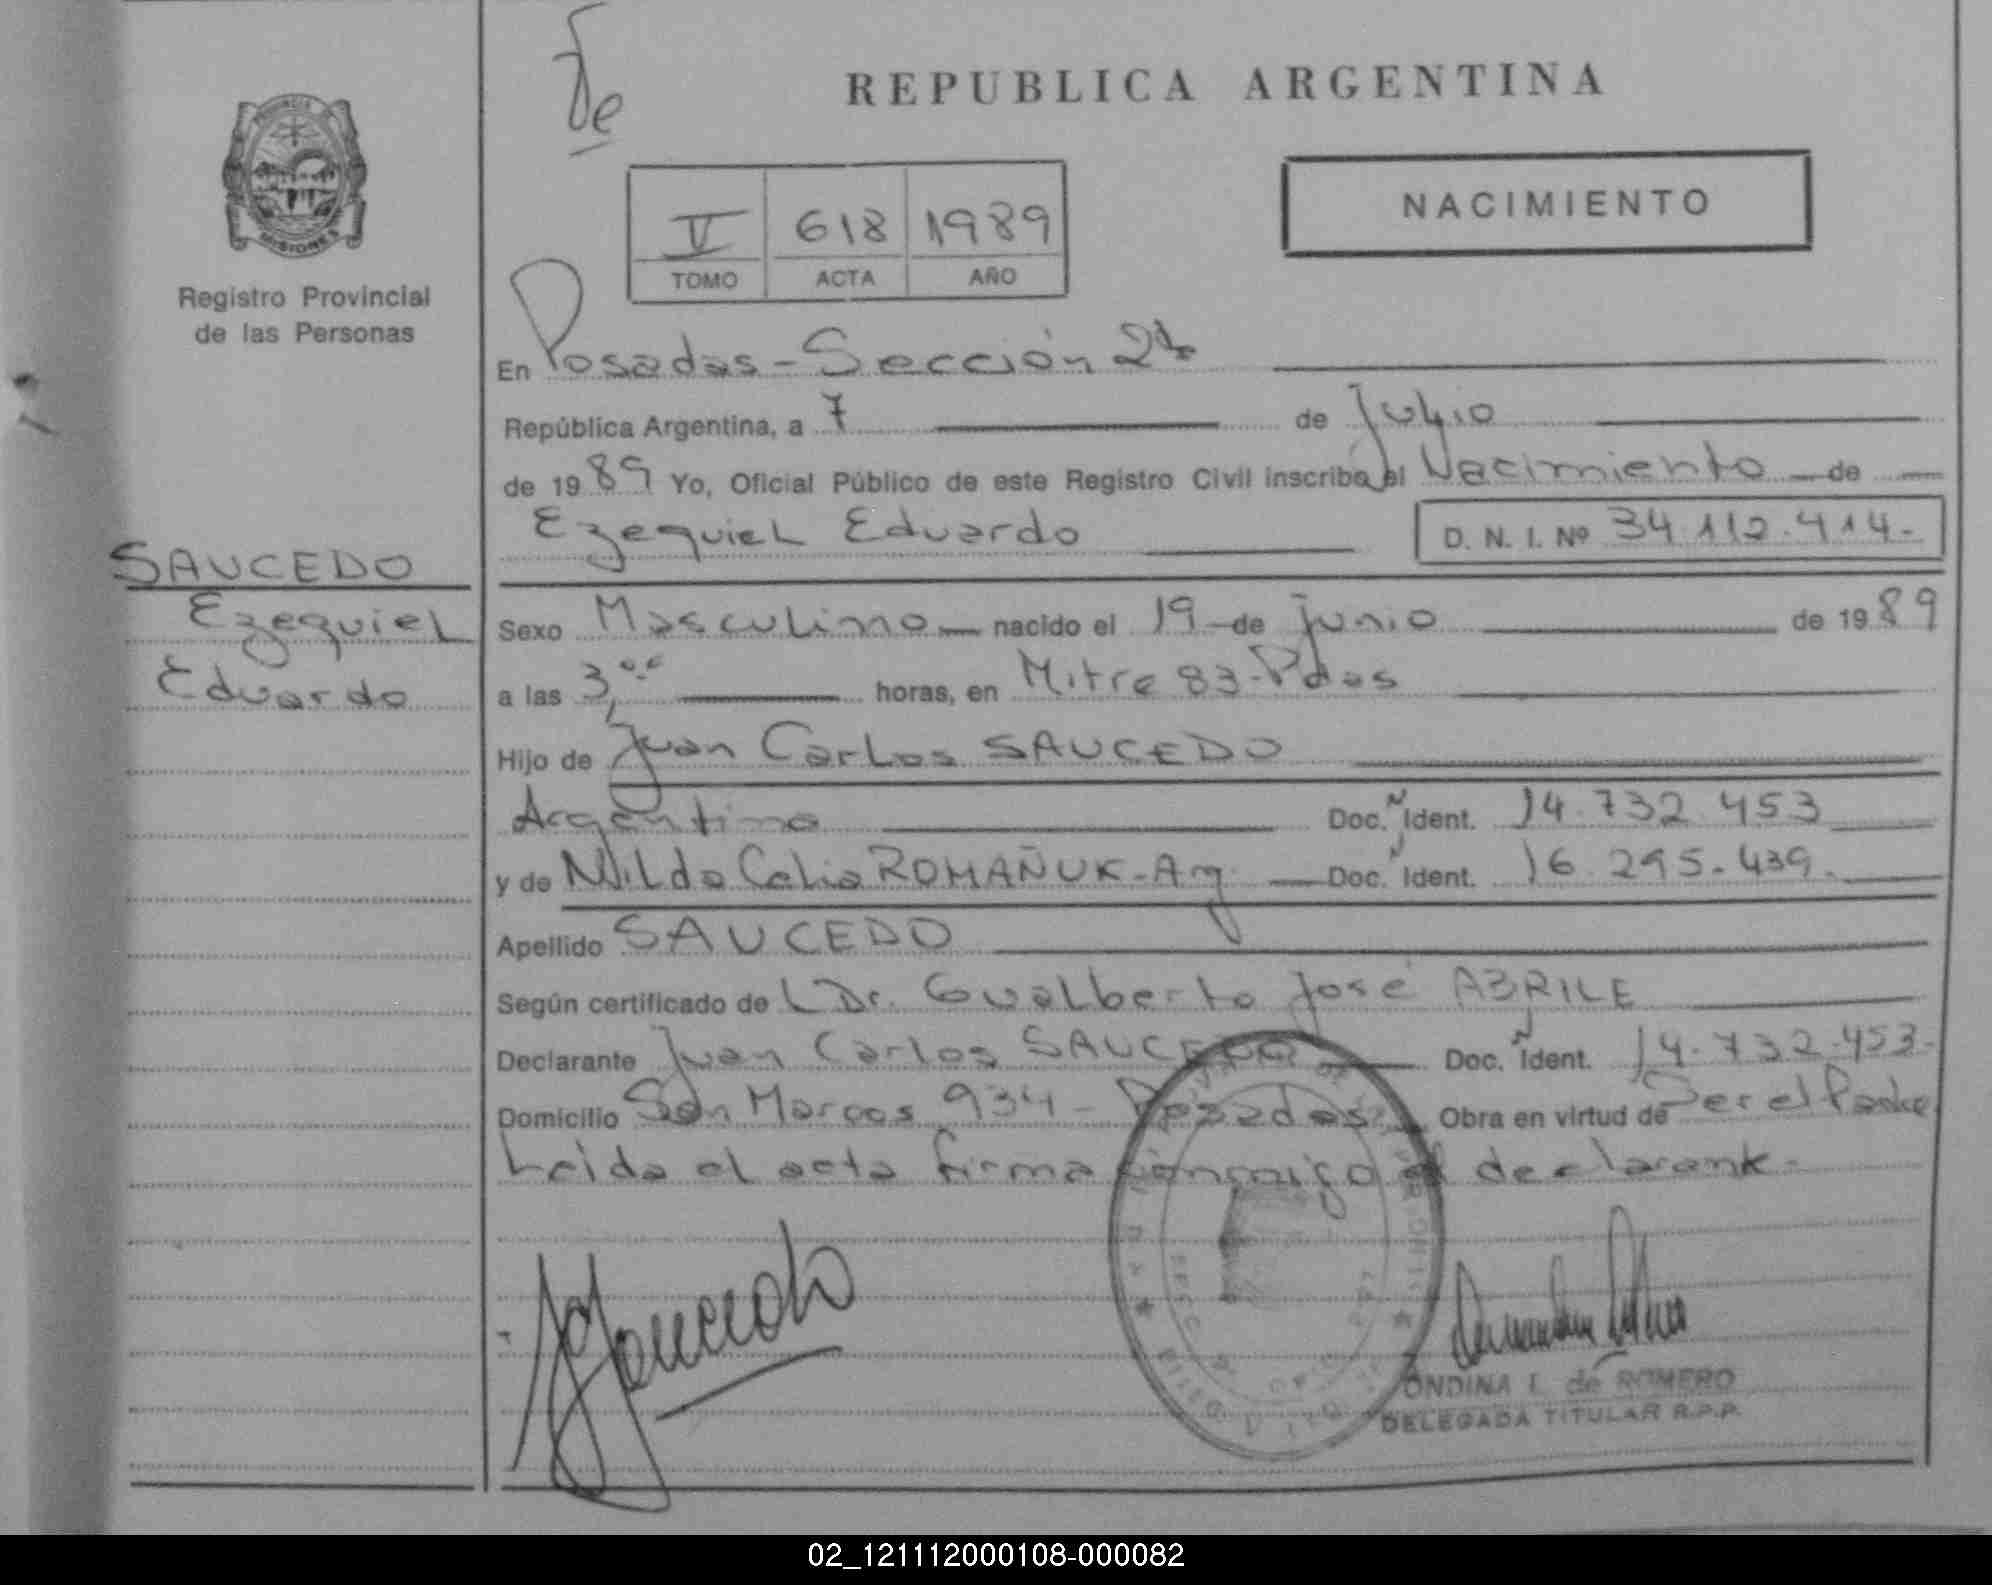 Fe
REPUBLICA ARGENTINA
PROVINCIA
MISIONES
Registro Provincial
de las Personas
V 618 1989
TOMO ACTA AÑO
NACIMIENTO
En Posadas - Sección 2da
República Argentina, a 7 de Julio
de 1989 Yo, Oficial Público de este Registro Civil inscribo el Nacimiento de
Ezequiel Eduardo D. N. I. Nº 34.112.414.-
SAUCEDO
Ezequiel
Eduardo
Sexo Masculino nacido el 19 de junio de 1989
a las 3,00 horas, en Mitre 83-Pdas
Hijo de Juan Carlos SAUCEDO
Argentino Doc. Ñ Ident. 14.732.453
y de Nilda Celia ROMAÑUK - Arg. Doc. Ñ Ident. 16.295.439.
Apellido SAUCEDO
Según certificado de L Dr. Gualberto José ABRILE
Declarante Juan Carlos SAUCEDO Doc. Ñ Ident. 14.732.453-
Domicilio San Marcos 934 - Posadas Obra en virtud de Ser el Padre
Leida el acta firma conmigo el declarante.-
JCSaucedo
ONDINA I. de ROMERO
DELEGADA TITULAR R.P.P.
02_121112000108-000082